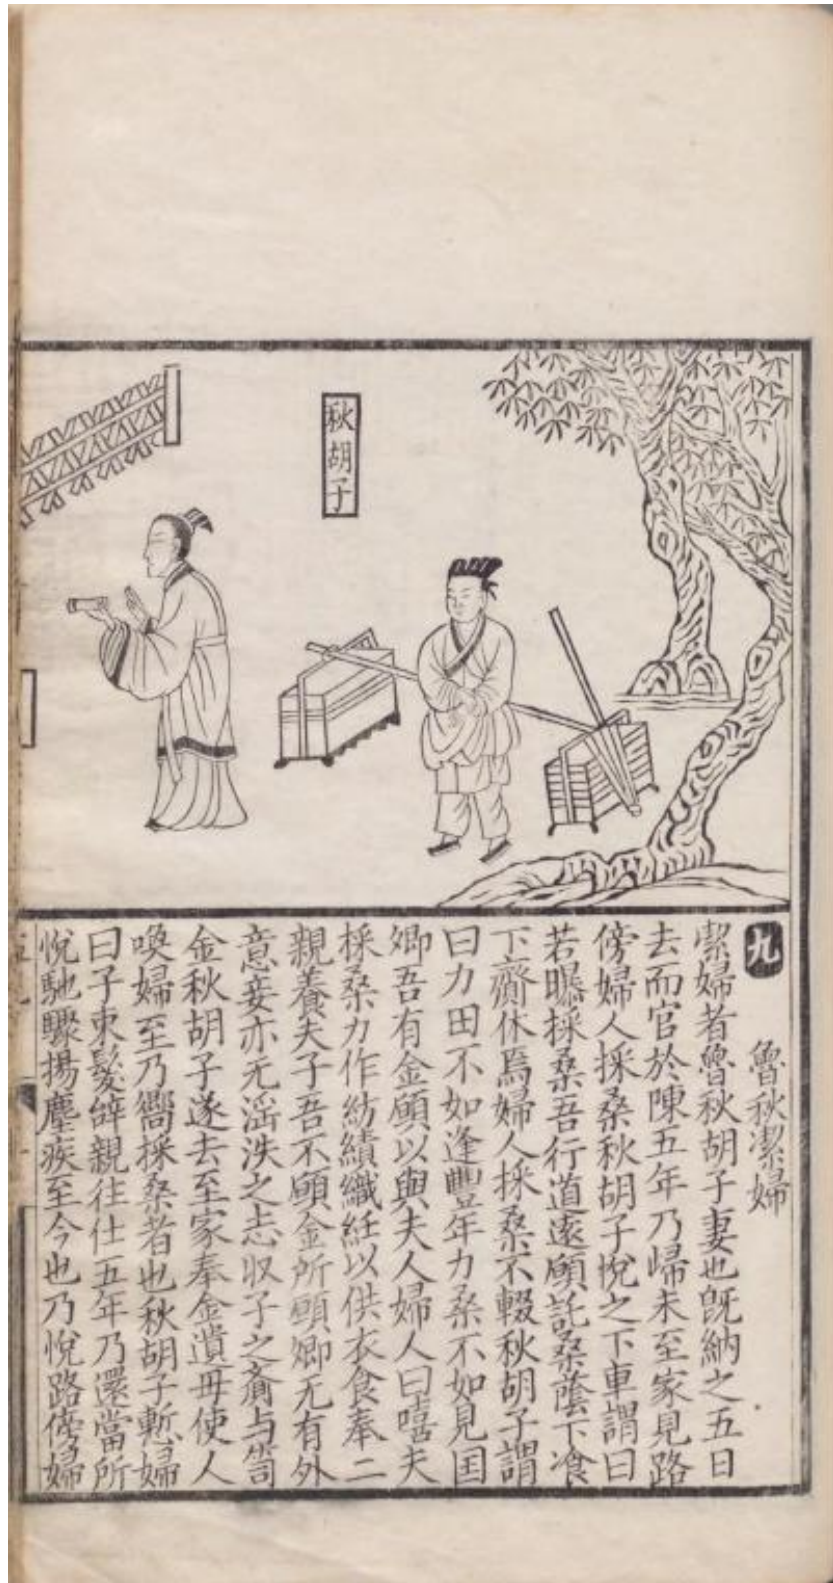 秋胡子
九
魯秋潔婦
潔婦者魯秋胡子妻也旣納之五日
去而官於陳五年乃歸未至家見路
傍婦人採桑秋胡子悅之下車謂曰
若曝採桑吾行道遠願託桑蔭下飡
下齎休焉婦人採桑不輟秋胡子謂
曰力田不如逢豐年力桑不如見国
卿吾有金願以與夫人婦人曰嘻夫
採桑力作紡績織紝以供衣食奉二
親養夫子吾不願金所願卿无有外
意妾亦无滛泆之志収子之齎与笥
金秋胡子遂去至家奉金遺母使人
喚婦至乃嚮採桑者也秋胡子慙婦
曰子束髮辤親往仕五年乃還當所
悅馳驟揚塵疾至今也乃悅路傍婦